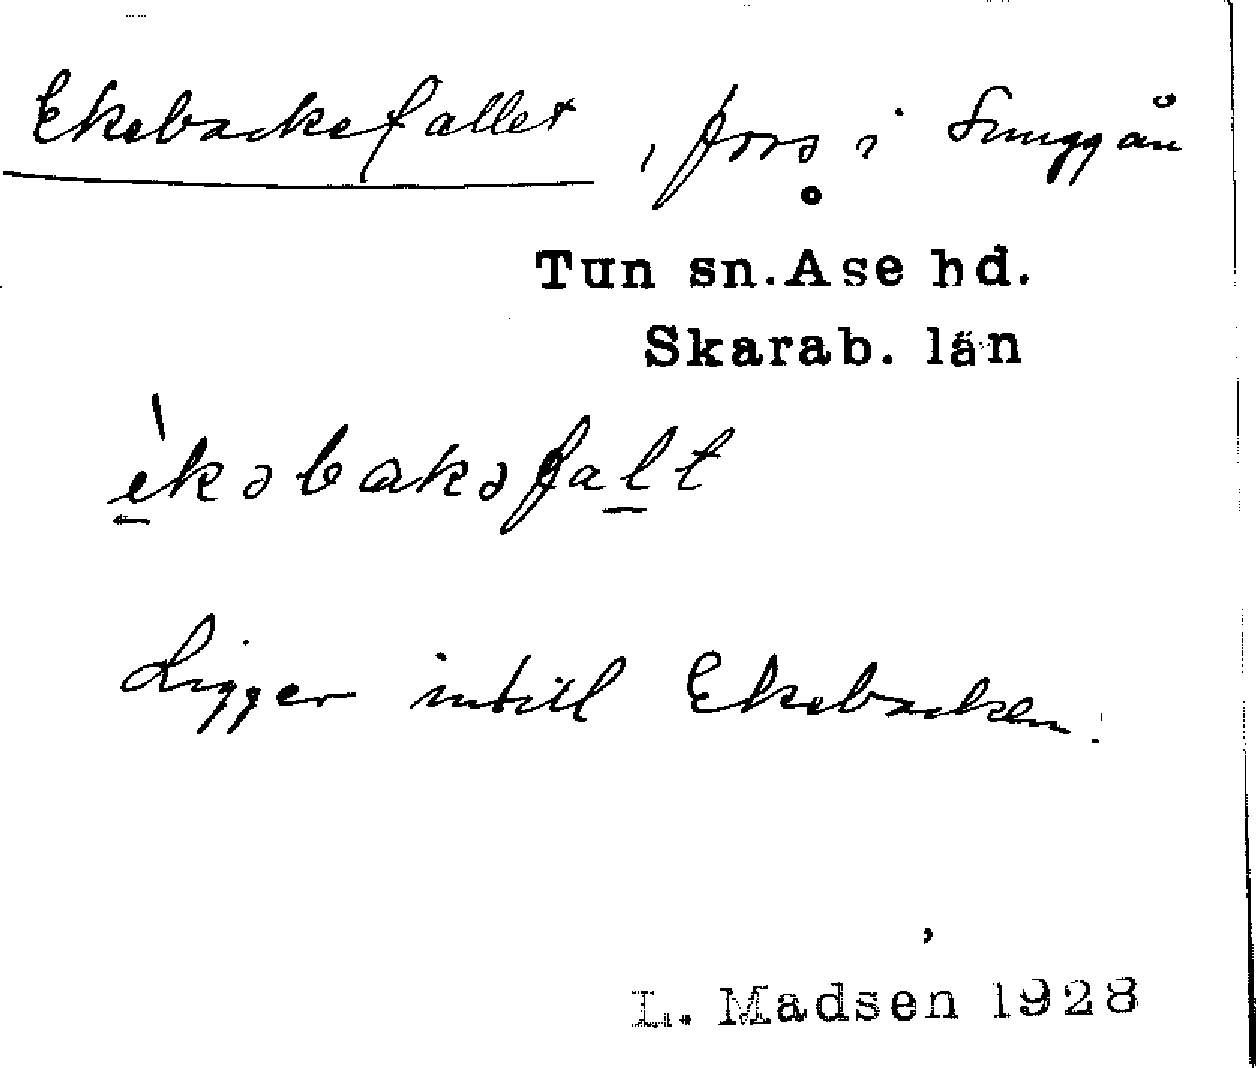 Ekebackefallet, fors i Sunggån
Tun sn. Åse hd.
Skarab. län
èkəbakəfalt
Ligger intill Ekebacken.
L. Madsen 1928